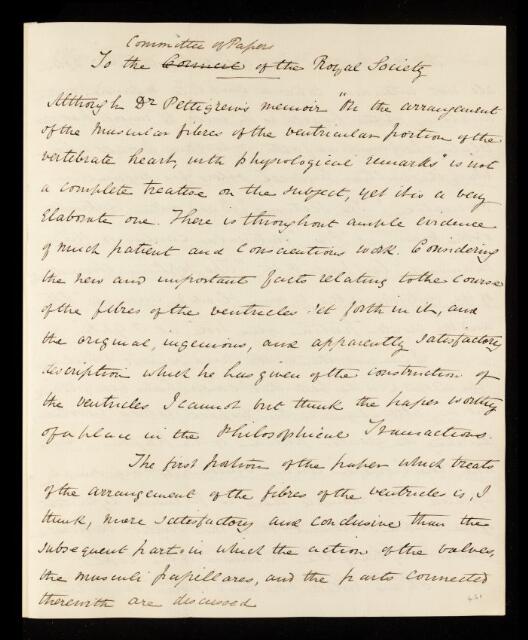 Committee of Papers
To the Council of the Royal Society
Although Dr Pettigrew's memoir "On the arrangement
of the Muscular fibres of the ventricular portion of the
vertebrate heart, with physiological remarks" is not
a complete treatise on the subject, yet it is a very
Elaborate one. There is throughout ample evidence
of much patient and conscientious work. Considering
the new and important facts relating to the course
of the fibres of the ventricles set forth in it, and
the original, ingenious, and apparently satisfactory
description which he has given of the construction of
the ventricles I cannot but think the paper worthy
of a place in the Philosophical Transactions.
The first portion of the paper which treats
of the arrangement of the fibres of the ventricles is, I
think, more satisfactory and conclusive than the
subsequent part in which the action of the valves,
the musculi papillares, and the parts connected
therewith are discussed